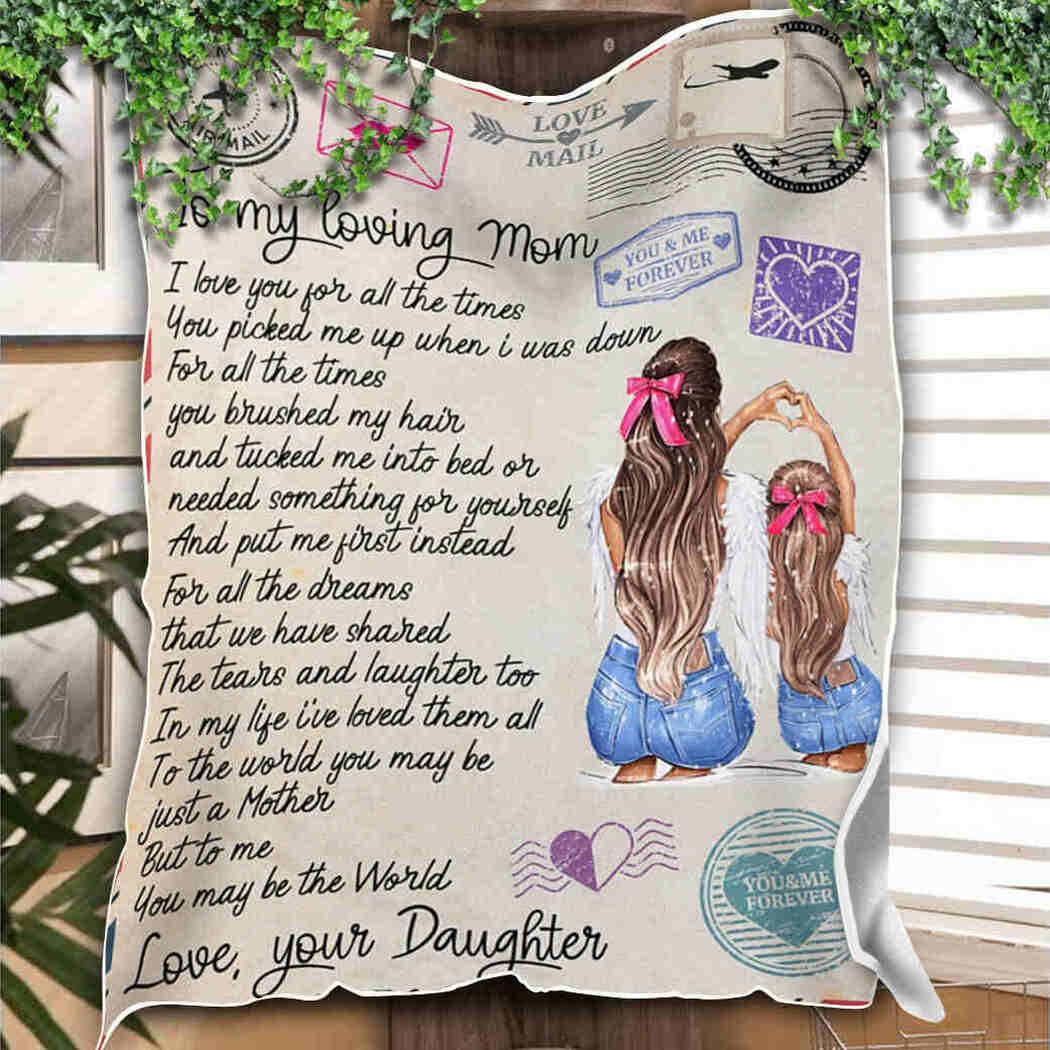 AIR MAIL
LOVE
MAIL
To my loving Mom
YOU & ME
FOREVER
I love you for all the times
You picked me up when i was down
For all the times
you brushed my hair
and tucked me into bed or
needed something for yourself
And put me first instead
For all the dreams
that we have shared
The tears and laughter too
In my life i've loved them all
To the world you may be
just a Mother
But to me
You may be the World
YOU&ME
FOREVER
Love, your Daughter